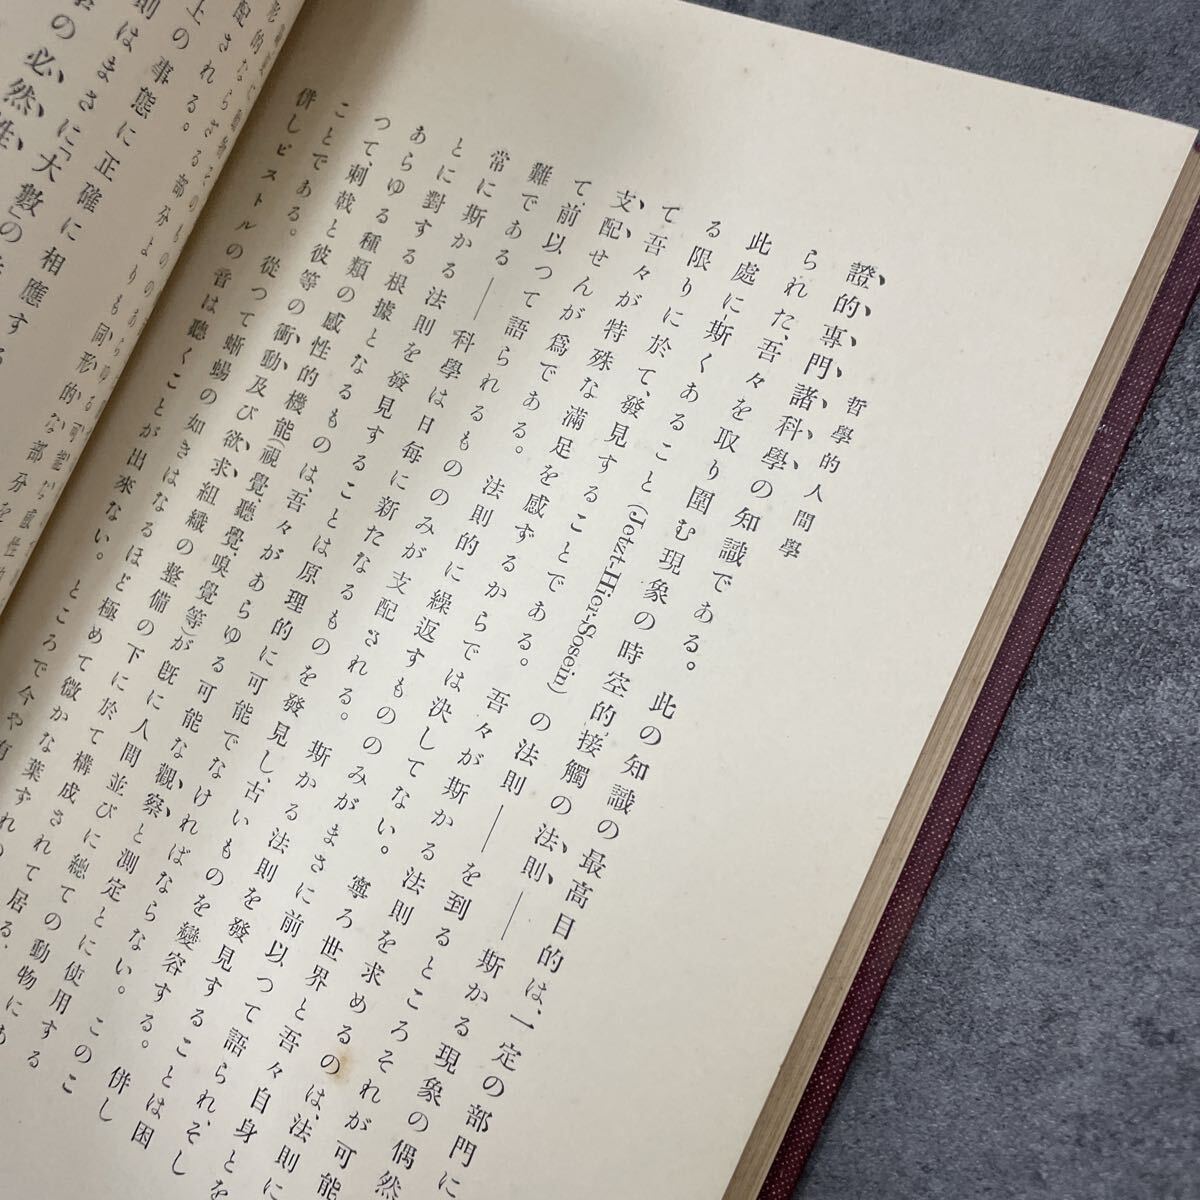 哲學的人間學
證的專門諸科學の知識である。 此の知識の最高目的は、一定の部門に
られた、吾々を取り圍む現象の時空的、接觸の法則――斯かる現象の偶然
此處に斯くあること(Jetzt-Hier-Sosein)の法則――を到るところそれが可能
る限りに於て、發見することである。 吾々が斯かる法則を求めるのは、法則に
て吾々が特殊な滿足を感ずるからでは決してない。 寧ろ世界と吾々自身とを
支配せんが爲である。 法則的に繰返すもののみがまさに前以つて語られ、そし
て、前以つて語られるもののみが支配される。 斯かる法則を發見することは困
難である――科學は日每に新たなるものを發見し、古いものを變容する。 併し
常に斯かる法則を發見することは原理的に可能でなければならない。 このこ
とに對する根據となるものは、吾々があらゆる可能な觀察と測定とに使用する
あらゆる種類の感性的機能(視覺、聽覺嗅覺等)が既に人間並びに總ての動物にあ
つて、刺戟と彼等の衝動及び欲求組織の整備の下に於て構成されて居る、
ことである。 從つて蜥蜴の如きはなるほど極めて微かな葉ずれの
併しピストルの音は聽くことが出來ない。 ところで今や有
上される。
事態に正確に相應する
則はまさに「大數」の
の必然性